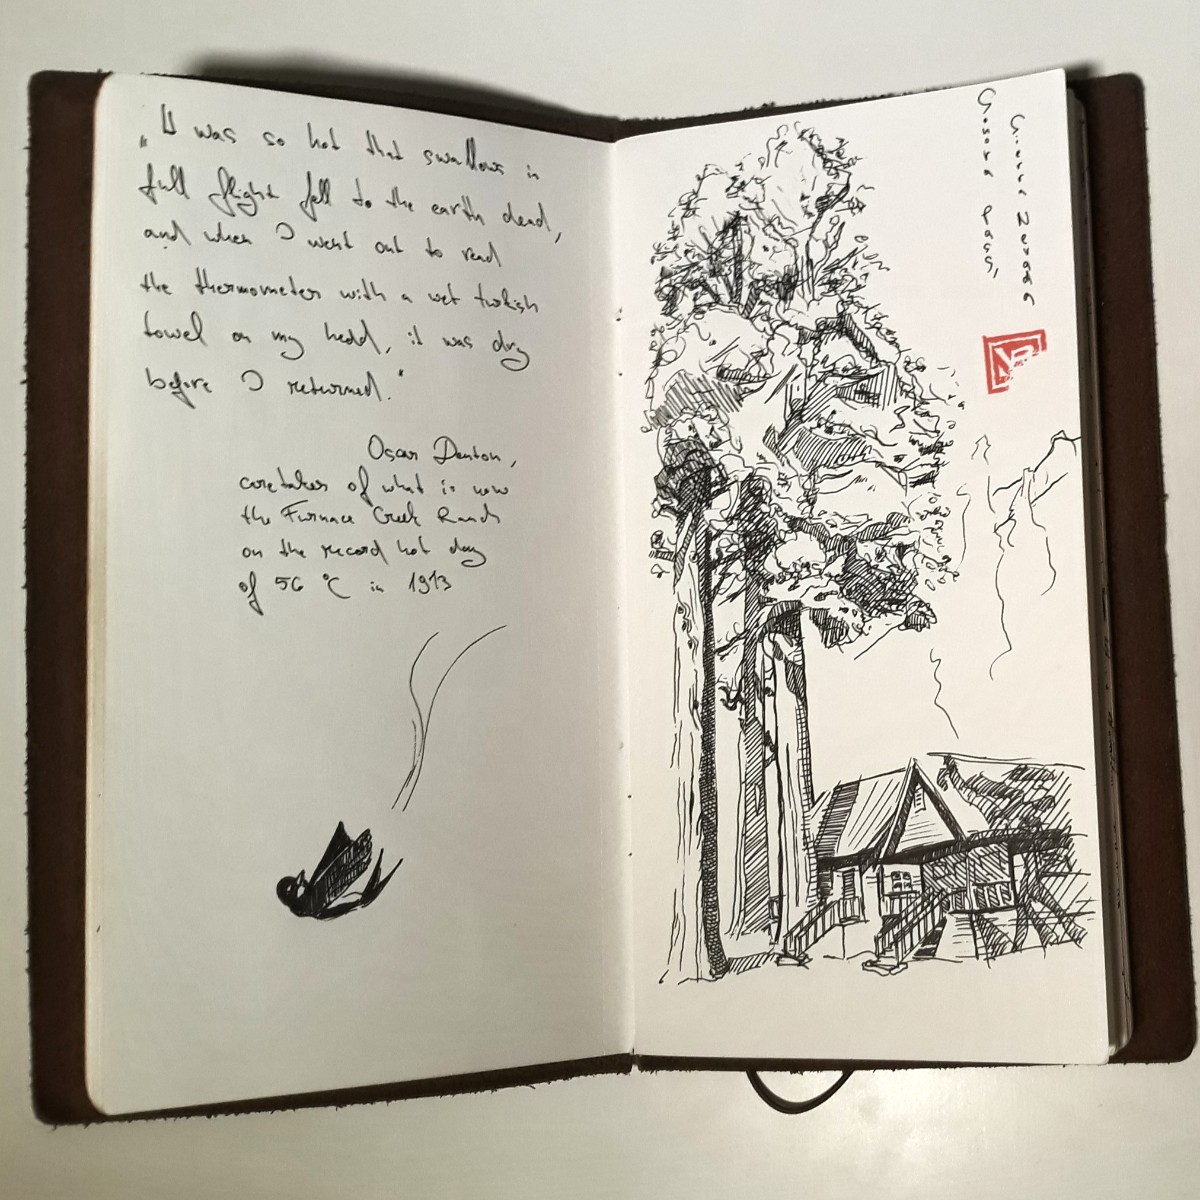 „It was so hot that swallows in
full flight fell to the earth dead,
and when I went out to read
the thermometer with a wet turkish
towel on my head, it was dry
before I returned."
Oscar Denton,
caretaker of what is now
the Furnace Creek Ranch
on the record hot day
of 56 °C in 1913
Sonora Pass,
Sierra Nevada